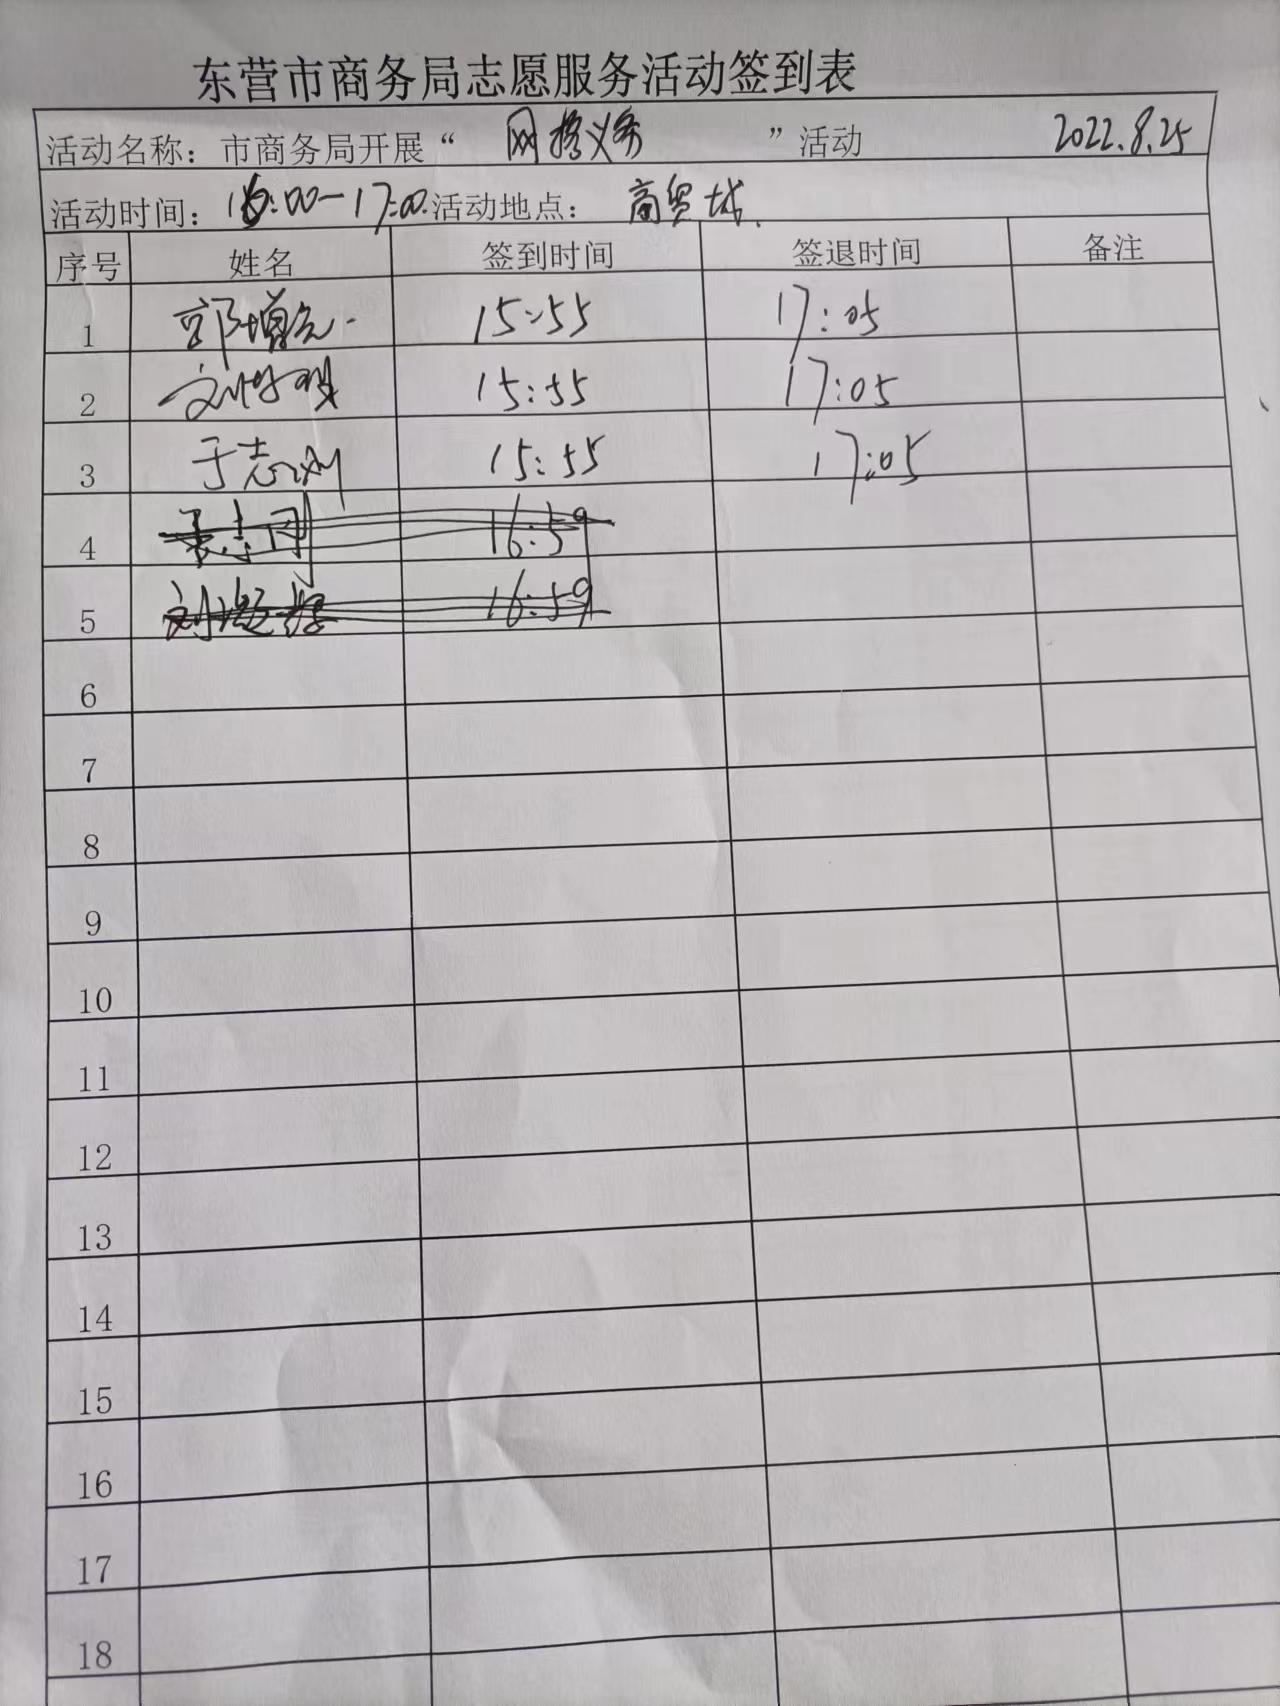 东营市商务局志愿服务活动签到表
活动名称：市商务局开展“ 网格义务 ”活动 2022.8.25
活动时间：16:00-17:00 活动地点：商贸城
序号 姓名 签到时间 签退时间 备注
1 郭增亮 15:55 17:05
2 15:55 17:05
3 于志刚 15:55 17:05
4 16:59
5 16:59
6
7
8
9
10
11
12
13
14
15
16
17
18